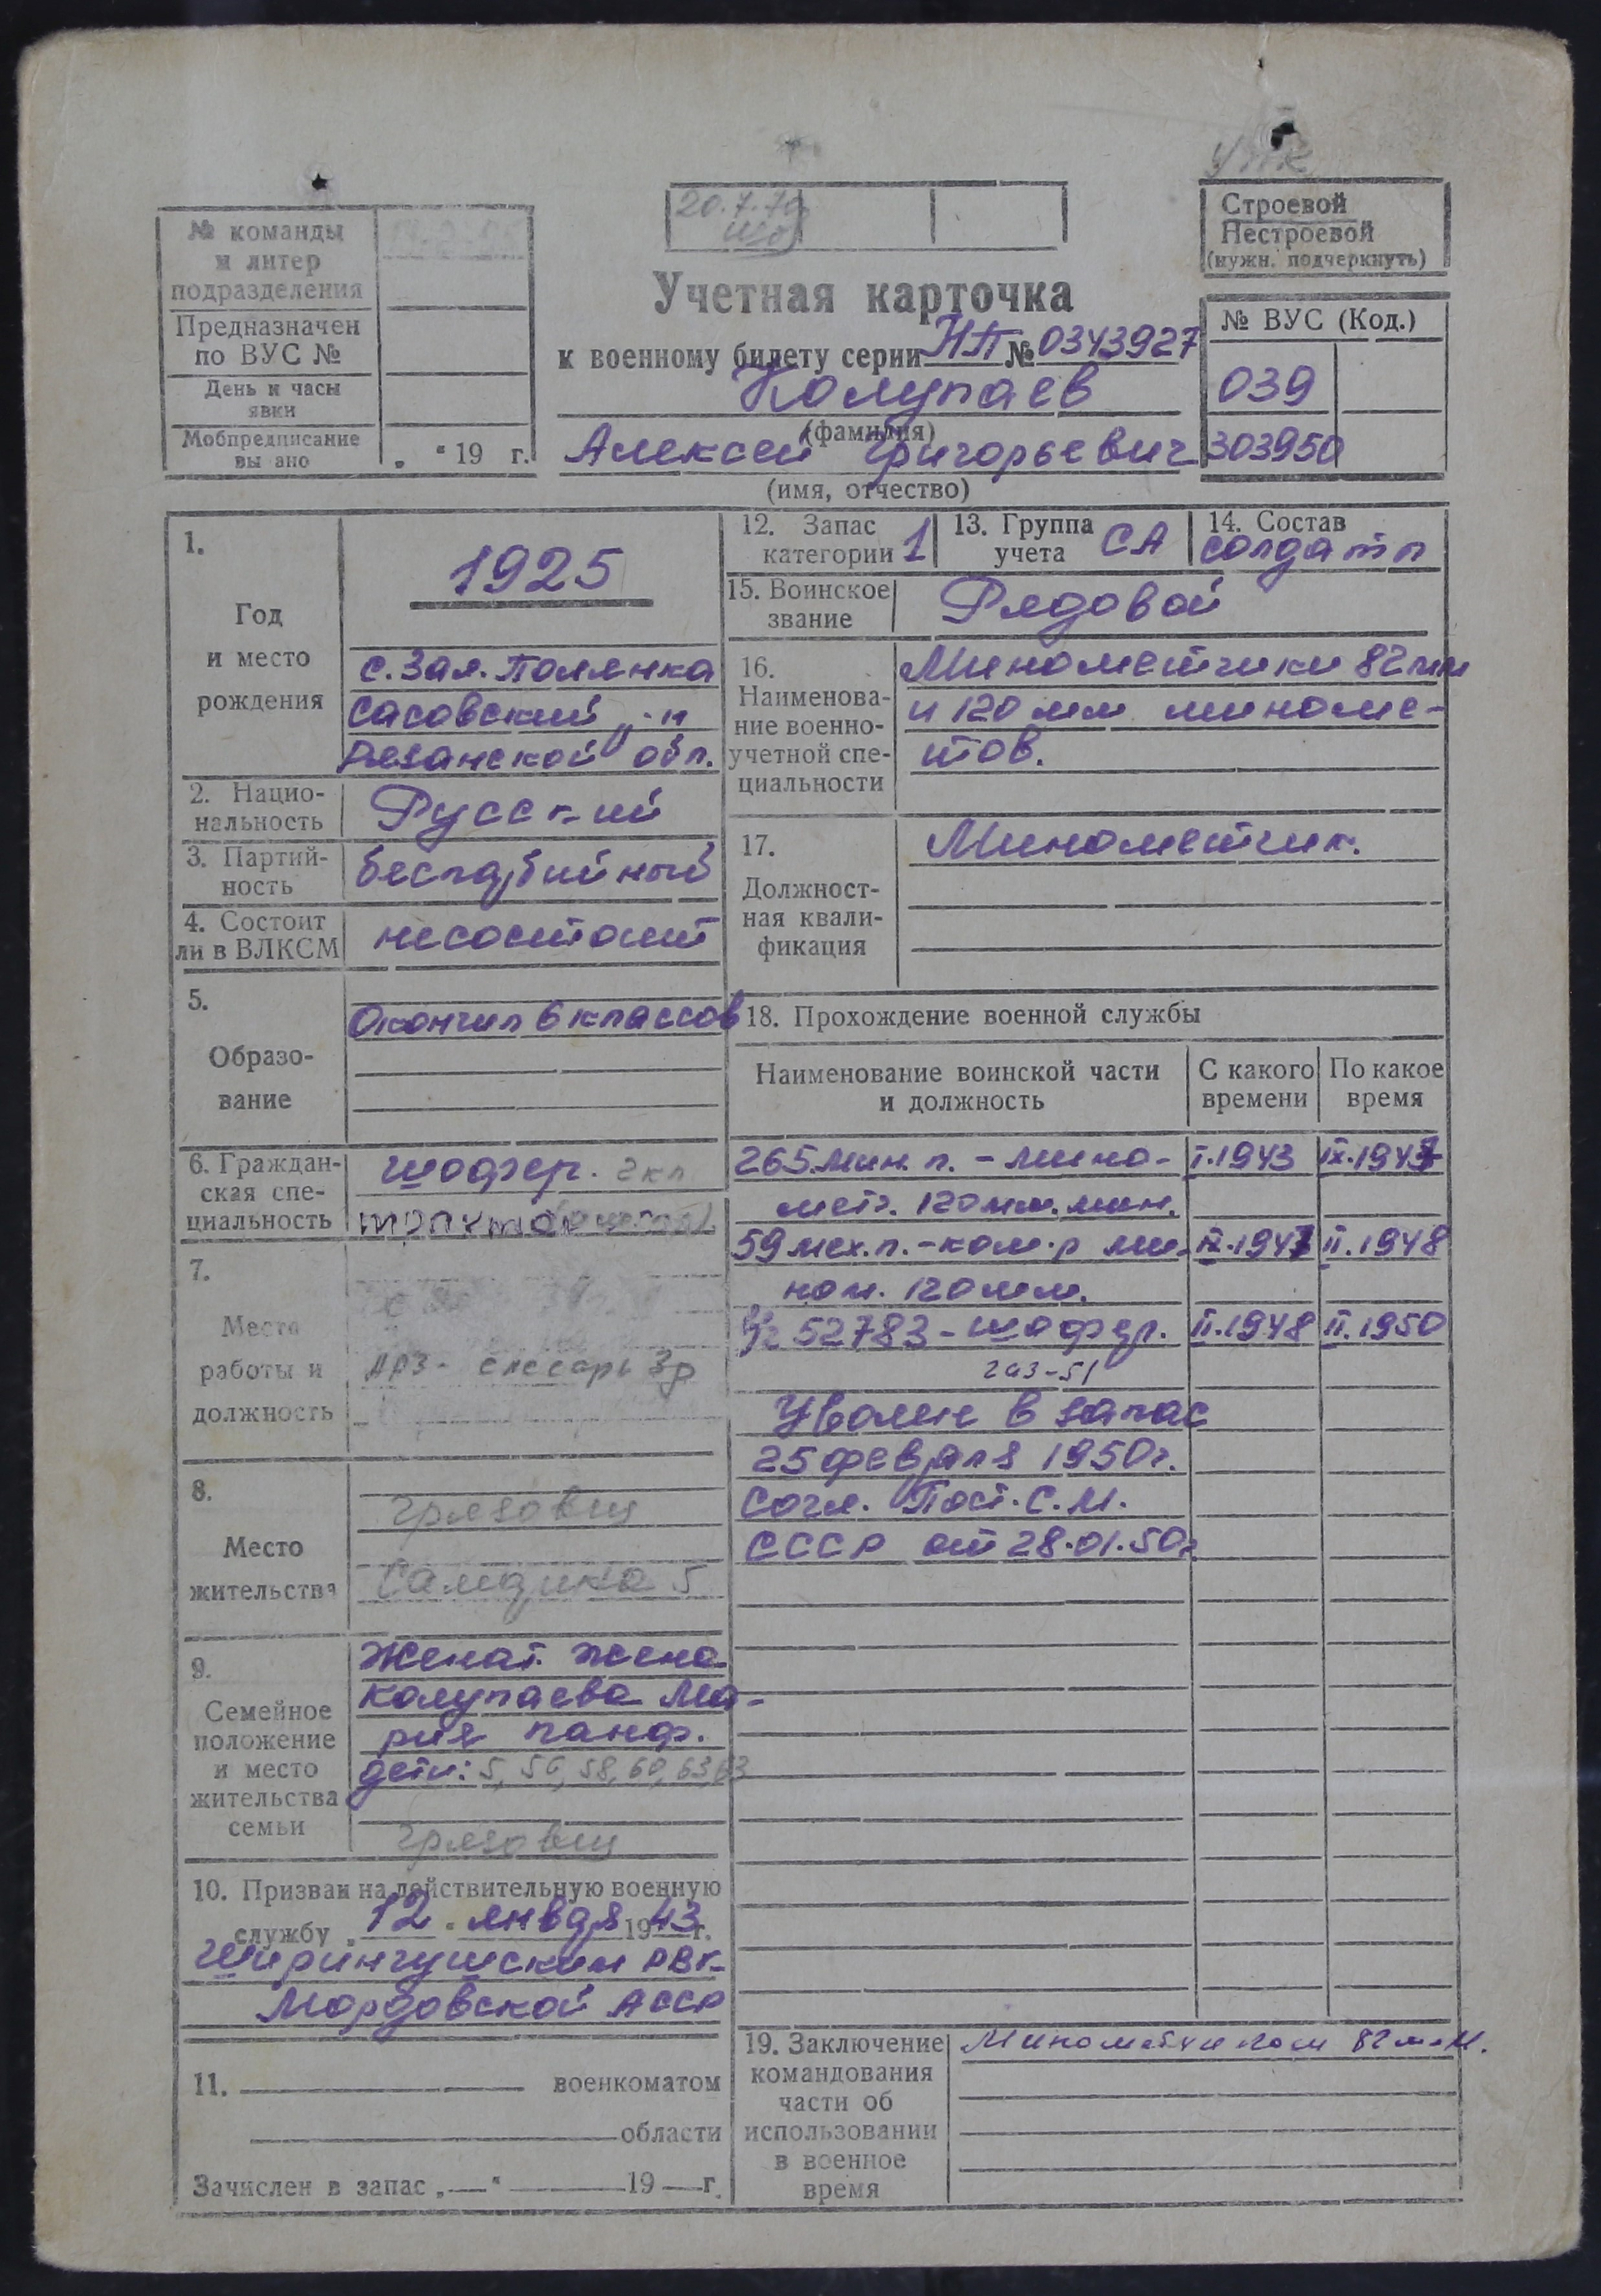 УПК
20.7.70
Строевой
Нестроевой
(нужн. подчеркнуть)
№ команды
и литер
подразделения
Предназначен
по ВУС №
День и часы
явки
Мобпредписание
вы ано „ “ 19 г.
Учетная карточка
к военному билету серии НП № 0343927
Колупаев
(фамилия)
Алексей Григорьевич
(имя, отчество)
№ ВУС (Код.)
039
303950
1.
Год
и место
рождения
1925
с. Зал. Полянка
Сасовский р-н
Рязанской обл.
2. Нацио-
нальность
Русский
3. Партий-
ность
беспартийный
4. Состоит
ли в ВЛКСМ
не состоит
5.
Образо-
вание
Окончил 6 классов
6. Граждан-
ская спе-
циальность
шофер. 2 кл
7.
Место
работы и
должность
АРЗ - слесарь 3р
8.
Место
жительства
Грязовец
9.
Семейное
положение
и место
жительства
семьи
Женат. жена
Колупаева Ма-
рия панф.
дети: 5, 56, 58, 60, 63, 63
Грязовец
10. Призван на действительную военную
службу „12“ января 1943 г.
Ширингушским РВК
Мордовской АССР
11. военкоматом
области
Зачислен в запас „ “ 19 г.
12. Запас
категории 1
13. Группа
учета СА
14. Состав
солдат
15. Воинское
звание
Рядовой
16.
Наименова-
ние военно-
учетной спе-
циальности
Минометчики 82мм
и 120 мм миноме-
тов.
17.
Должност-
ная квали-
фикация
Минометчик.
18. Прохождение военной службы
Наименование воинской части
и должность
С какого
времени
По какое
время
265 мин. п. - мино- I.1943 IX.1947
мет. 120 мм. мин.
59 мех. п. - ком. р ми- IX.1947 II.1948
ном. 120 мм.
в/ч 52783 - шофер. II.1948 II.1950
газ-51
Уволен в запас
25 февраля 1950г.
Согл. Пост. С.М.
СССР от 28.01.50г
19. Заключение
командования
части об
использовании
в военное
время
Минометчиком 82 мм.